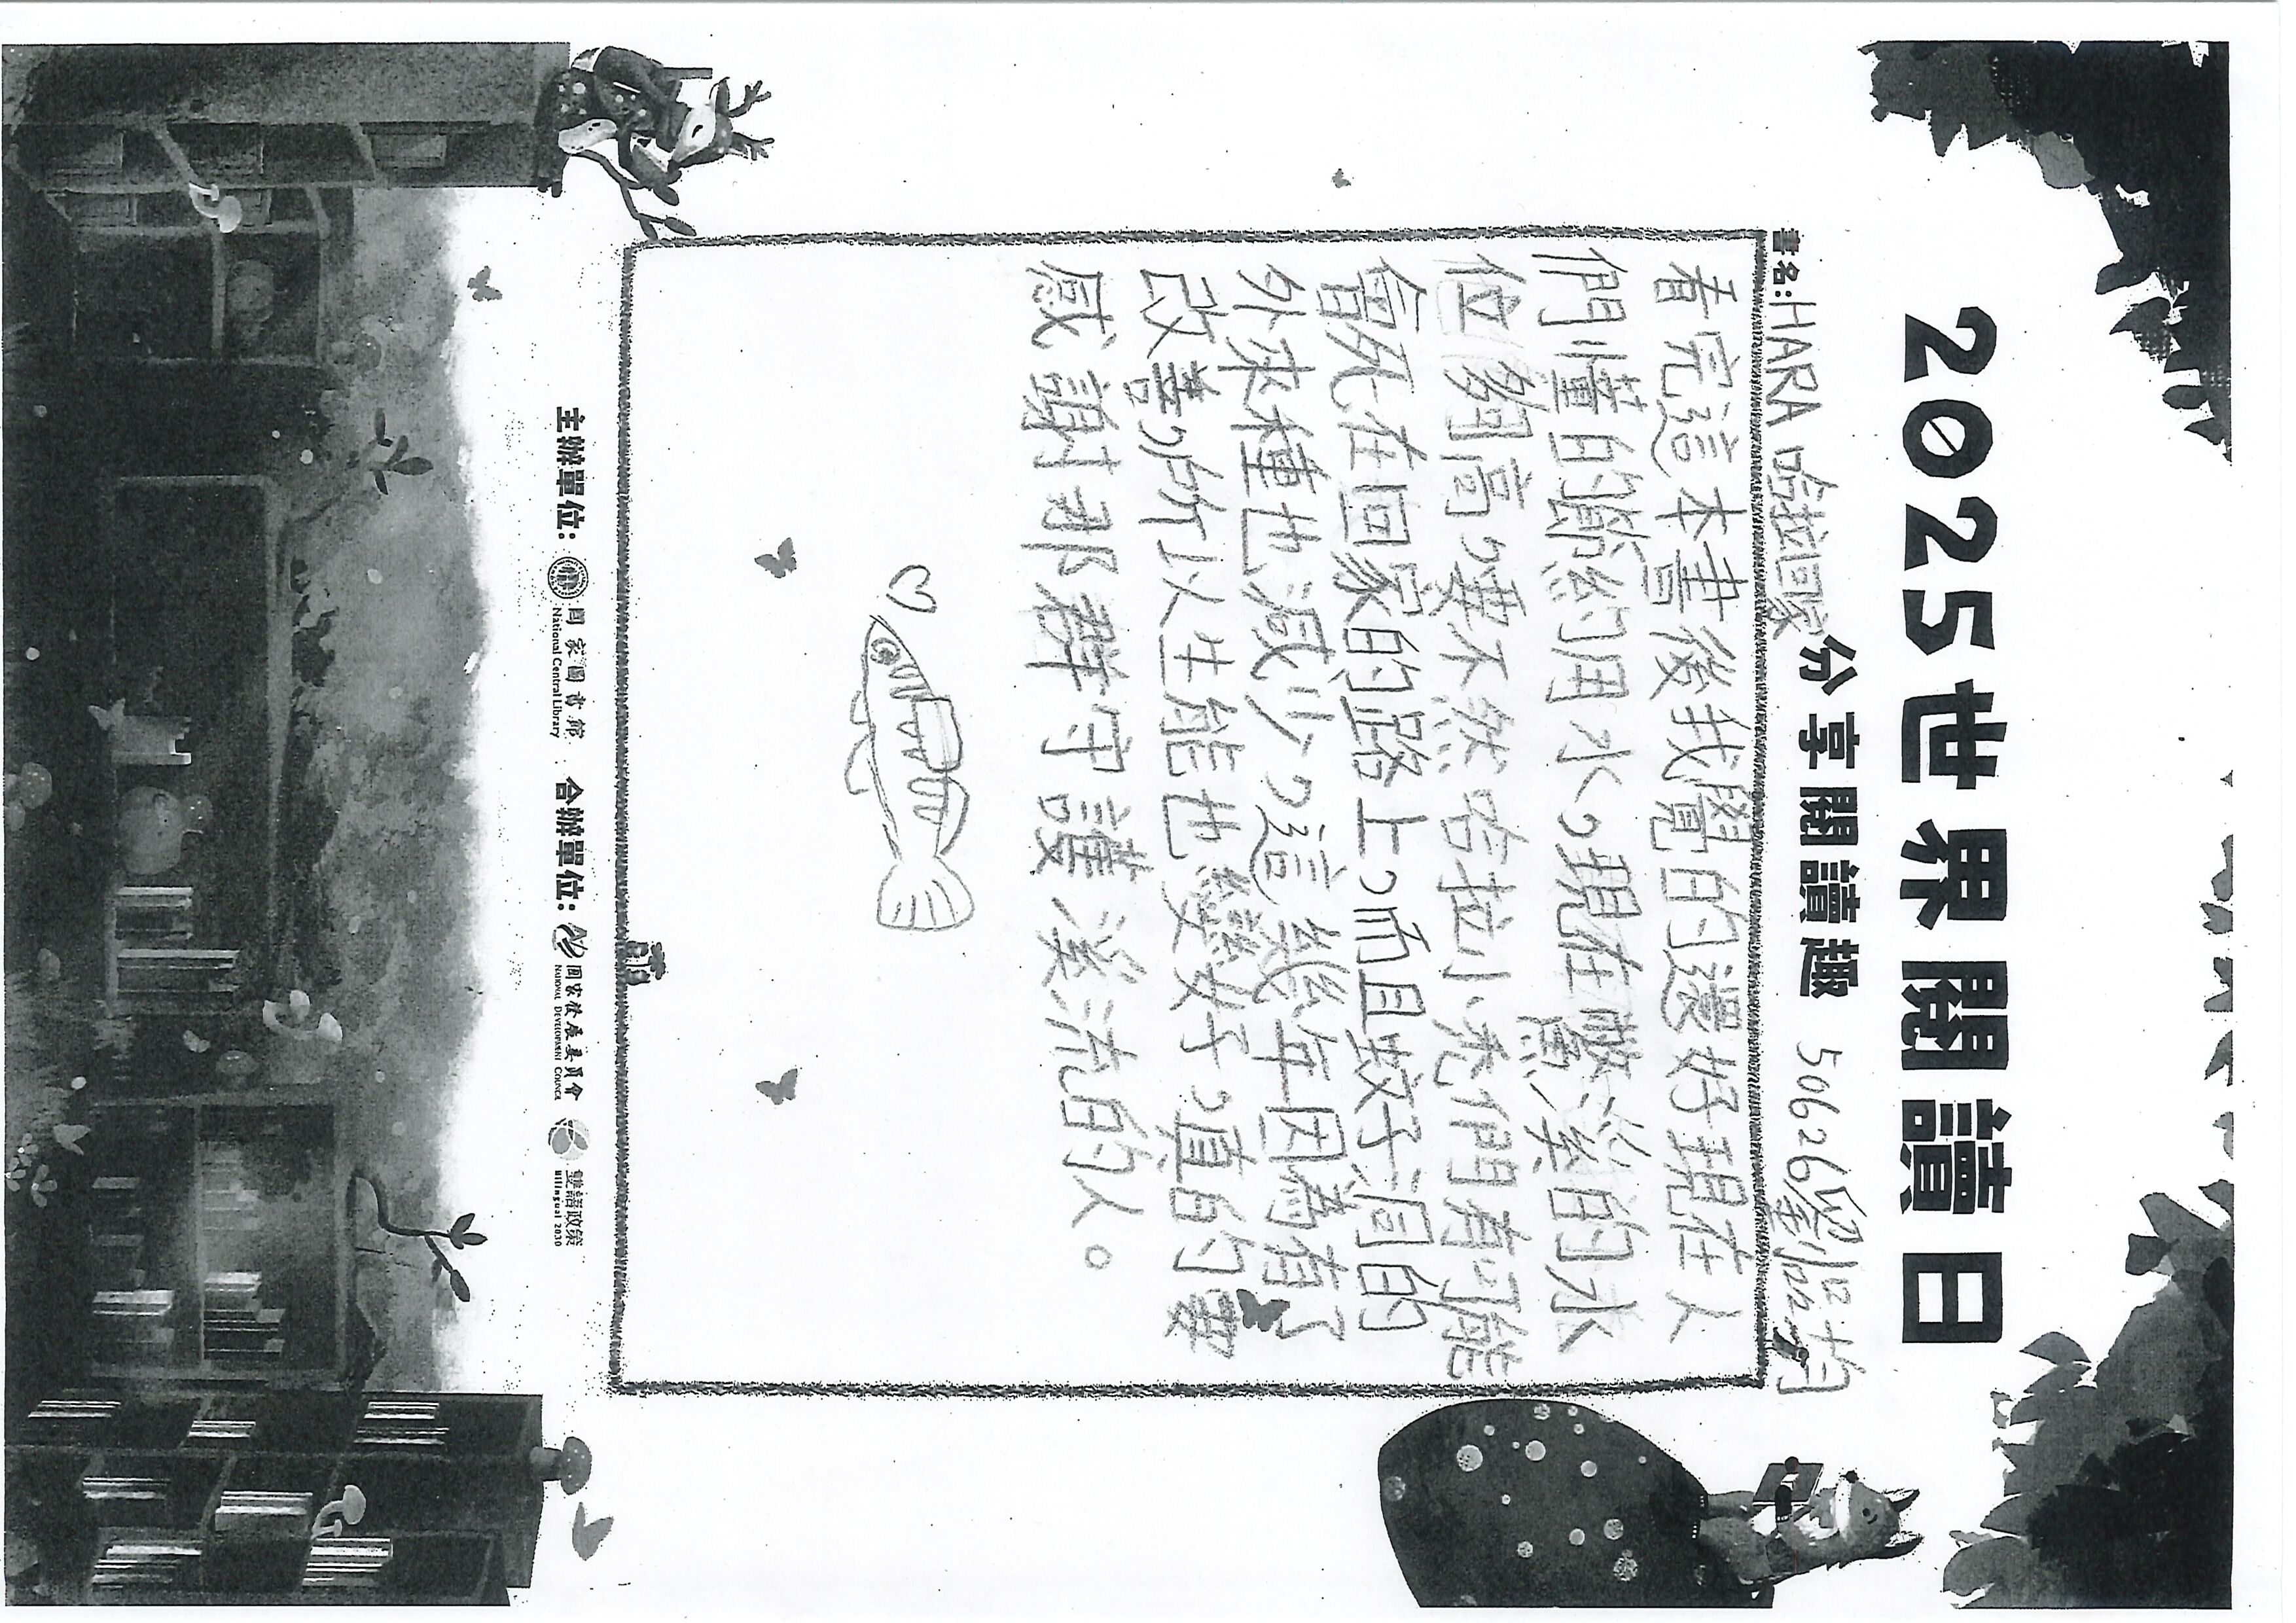 2025世界閱讀日
分享閱讀趣
50626劉恺均
書名:HARA 哈拉回家
看完這本書後我覺的還好現在人
們懂的節約用水,現在礫溪的水
位夠高,要不然哈拉小禿們有可能
會死在回家的路上,而且較於之間的
外來種也減少,這幾年因為有了
改善,所以生態也變好,真的要
感謝那群守護溪流的人。
主辦單位: 國家圖書館 National Central Library
合辦單位: 國家發展委員會 National Development Council
雙語政策 Bilingual 2030